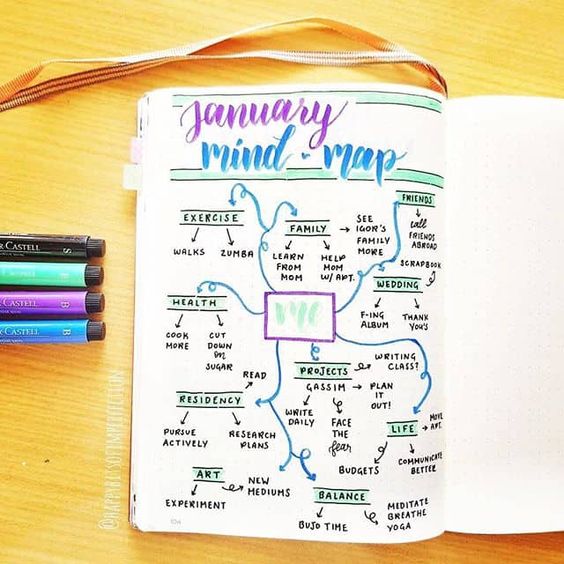 january
mind-map
EXERCISE
WALKS
ZUMBA
FAMILY
LEARN
FROM
MOM
HELP
MOM
W/APT.
SEE
IGOR'S
FAMILY
MORE
FRIENDS
call
FRIENDS
ABROAD
SCRAPBOOK
WEDDING
F-ING
ALBUM
THANK
YOU'S
HEALTH
COOK
MORE
CUT
DOWN
on
SUGAR
me
PROJECTS
WRITING
CLASS?
GASSIM
PLAN
IT
OUT!
WRITE
DAILY
FACE
THE
fear
READ
RESIDENCY
PURSUE
ACTIVELY
RESEARCH
PLANS
LIFE
MOVE
APT.
BUDGETS
COMMUNICATE
BETTER
ART
NEW
MEDIUMS
EXPERIMENT
BALANCE
BUJO TIME
MEDITATE
BREATHE
YOGA
CASTELL
S
CASTELL
B
CASTELL
B
CASTELL
B